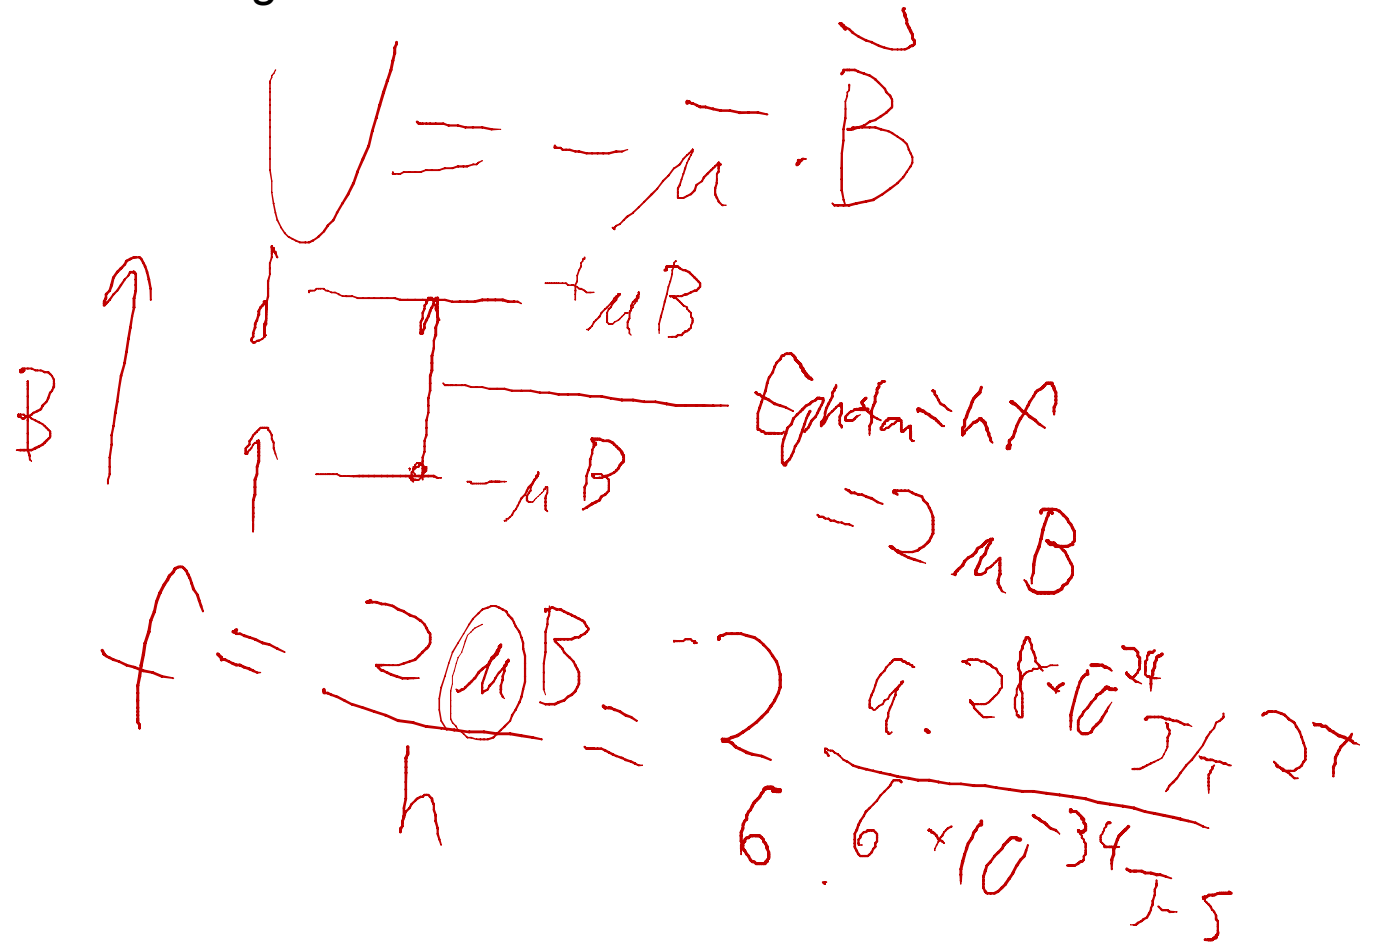 U = - μ · B
+ μB
B
E photon = hf
- μB
= 2 μB
f = 2 μ B / h = 2 9.28 × 10^24 J/T 2T / 6.6 × 10^-34 J-s